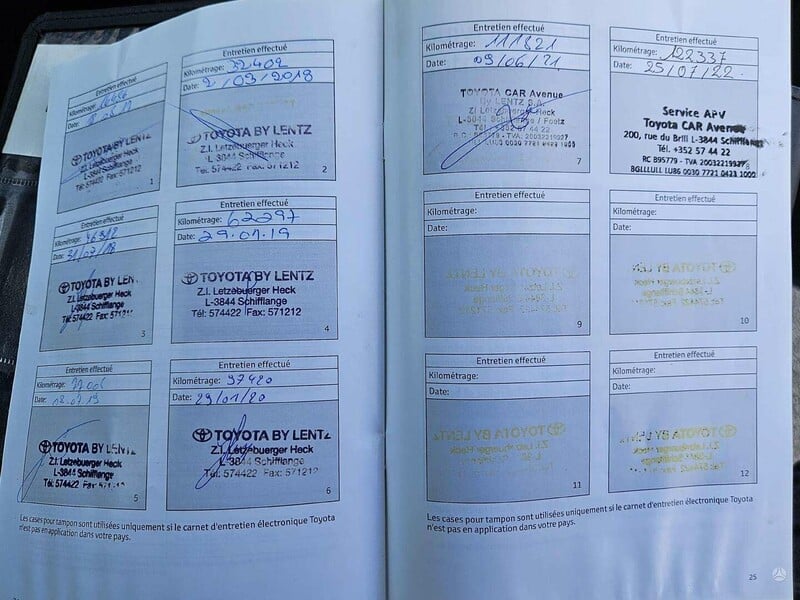 Entretien effectué
Kilométrage:
Date:
TOYOTA BY LENTZ
Z.I. Letzebuerger Heck
L-3844 Schifflange
Tél: 574422 Fax: 571212
1
Entretien effectué
Kilométrage: 32402
Date: 2/03/2018
TOYOTA BY LENTZ
Z.I. Letzebuerger Heck
L-3844 Schifflange
Tél: 574422 Fax: 571212
2
Entretien effectué
Kilométrage: 46312
Date: 31/07/18
TOYOTA BY LEN
Z.I. Letzebuerger Heck
L-3844 Schifflange
Tél: 574422 Fax: 571212
3
Entretien effectué
Kilométrage: 62297
Date: 29.01.19
TOYOTA BY LENTZ
Z.I. Letzebuerger Heck
L-3844 Schifflange
Tél: 574422 Fax: 571212
4
Entretien effectué
Kilométrage:
Date: 02.07.19
TOYOTA BY LENTZ
Z.I. Letzebuerger Heck
L-3844 Schifflange
Tél: 574422 Fax: 571212
5
Entretien effectué
Kilométrage: 97420
Date: 29/01/20
TOYOTA BY LENTZ
Z.I. Letzebuerger Heck
L-3844 Schifflange
Tél: 574422 Fax: 571212
6
Les cases pour tampon sont utilisées uniquement si le carnet d'entretien électronique Toyota
n'est pas en application dans votre pays.
Entretien effectué
Kilométrage: 111821
Date: 09/06/21
TOYOTA CAR Avenue
By LENTZ S.A.
Z.I. Letzebuerger Heck
L-3844 Schifflange / Foetz
Tél. +352 57 44 22
7
Entretien effectué
Kilométrage: 122337
Date: 25/07/22
Service APV
Toyota CAR Avenue
200, rue du Brill L-3844 Schifflange
Tél. +352 57 44 22
RC B95779 - TVA 20032219927
BGLLLULL LU86 0030 7721 0423 1000
Entretien effectué
Kilométrage:
Date:
9
Entretien effectué
Kilométrage:
Date:
10
Entretien effectué
Kilométrage:
Date:
11
Entretien effectué
Kilométrage:
Date:
12
Les cases pour tampon sont utilisées uniquement si le carnet d'entretien électronique Toyota
n'est pas en application dans votre pays.
25